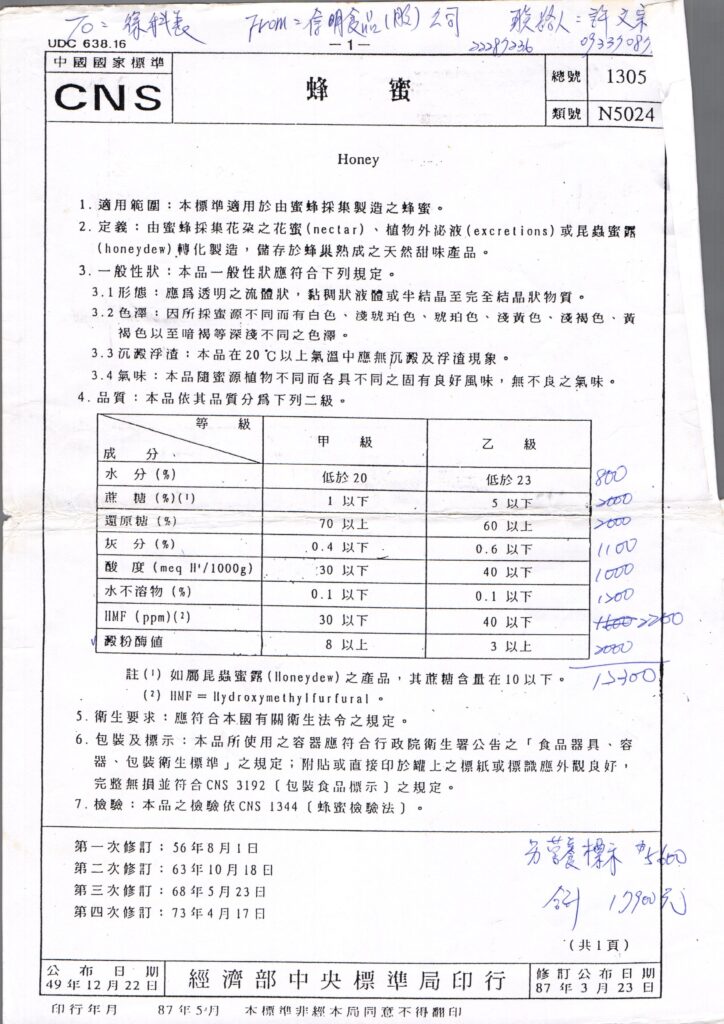 To= From=信明食品(股)公司 聯絡人: 許文宗
UDC 638.16 —1— 22289236
中國國家標準
CNS
蜂 蜜
總號 1305
類號 N5024
Honey
1. 適用範圍：本標準適用於由蜜蜂採集製造之蜂蜜。
2. 定義：由蜜蜂採集花朶之花蜜(nectar)、植物外泌液(excretions)或昆蟲蜜露
(honeydew)轉化製造，儲存於蜂巢熟成之天然甜味產品。
3. 一般性狀：本品一般性狀應符合下列規定。
3.1 形態：應爲透明之流體狀，黏稠狀液體或半結晶至完全結晶狀物質。
3.2 色澤：因所採蜜源不同而有白色、淺琥珀色、琥珀色、淺黃色、淺褐色、黃
褐色以至暗褐等深淺不同之色澤。
3.3 沉澱浮渣：本品在20℃以上氣溫中應無沉澱及浮渣現象。
3.4 氣味：本品隨蜜源植物不同而各具不同之固有良好風味，無不良之氣味。
4. 品質：本品依其品質分爲下列二級。
等 級 甲 級 乙 級
成 分
水 分(%) 低於20 低於23 800
蔗 糖(%)(1) 1 以下 5 以下 2000
還原糖(%) 70 以上 60 以上 2000
灰 分(%) 0.4 以下 0.6 以下 1100
酸 度(meq H+/1000g) 30 以下 40 以下 1000
水不溶物(%) 0.1 以下 0.1 以下 1200
HMF (ppm)(2) 30 以下 40 以下 2200
澱粉酶値 8 以上 3 以上 2000
註(1) 如屬昆蟲蜜露(Honeydew)之產品，其蔗糖含量在10以下。 12300
(2) HMF = Hydroxymethylfurfural。
5. 衛生要求：應符合本國有關衛生法令之規定。
6. 包裝及標示：本品所使用之容器應符合行政院衛生署公告之「食品器具、容
器、包裝衛生標準」之規定；附貼或直接印於罐上之標紙或標識應外觀良好，
完整無損並符合CNS 3192〔包裝食品標示〕之規定。
7. 檢驗：本品之檢驗依CNS 1344〔蜂蜜檢驗法〕。
第一次修訂：56年8月1日
第二次修訂：63年10月18日
第三次修訂：68年5月23日
第四次修訂：73年4月17日
另營養標示 $5600
合計 17900元
(共1頁)
公布日期
49年12月22日
經濟部中央標準局印行
修訂公布日期
87年3月23日
印行年月 87年5月 本標準非經本局同意不得翻印